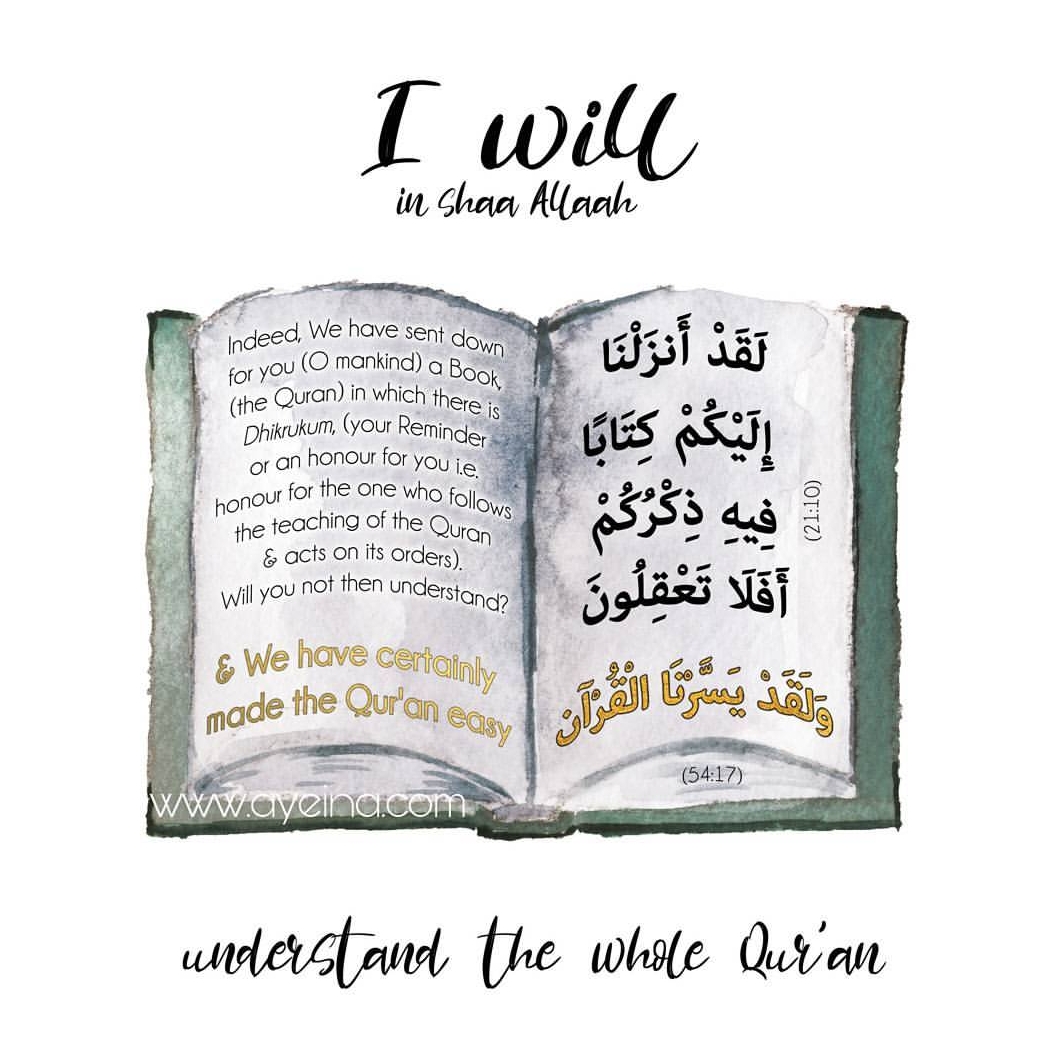 I will
in shaa Allaah
Indeed, We have sent down
for you (O mankind) a Book,
(the Quran) in which there is
Dhikrukum, (your Reminder
or an honour for you i.e.
honour for the one who follows
the teaching of the Quran
& acts on its orders).
Will you not then understand?
& We have certainly
made the Qur'an easy
لَقَدْ أَنزَلْنَا
إِلَيْكُمْ كِتَابًا
فِيهِ ذِكْرُكُمْ
أَفَلَا تَعْقِلُونَ
(21:10)
وَلَقَدْ يَسَّرْنَا الْقُرْآنَ
(54:17)
www.ayeina.com
understand the whole Qur'an